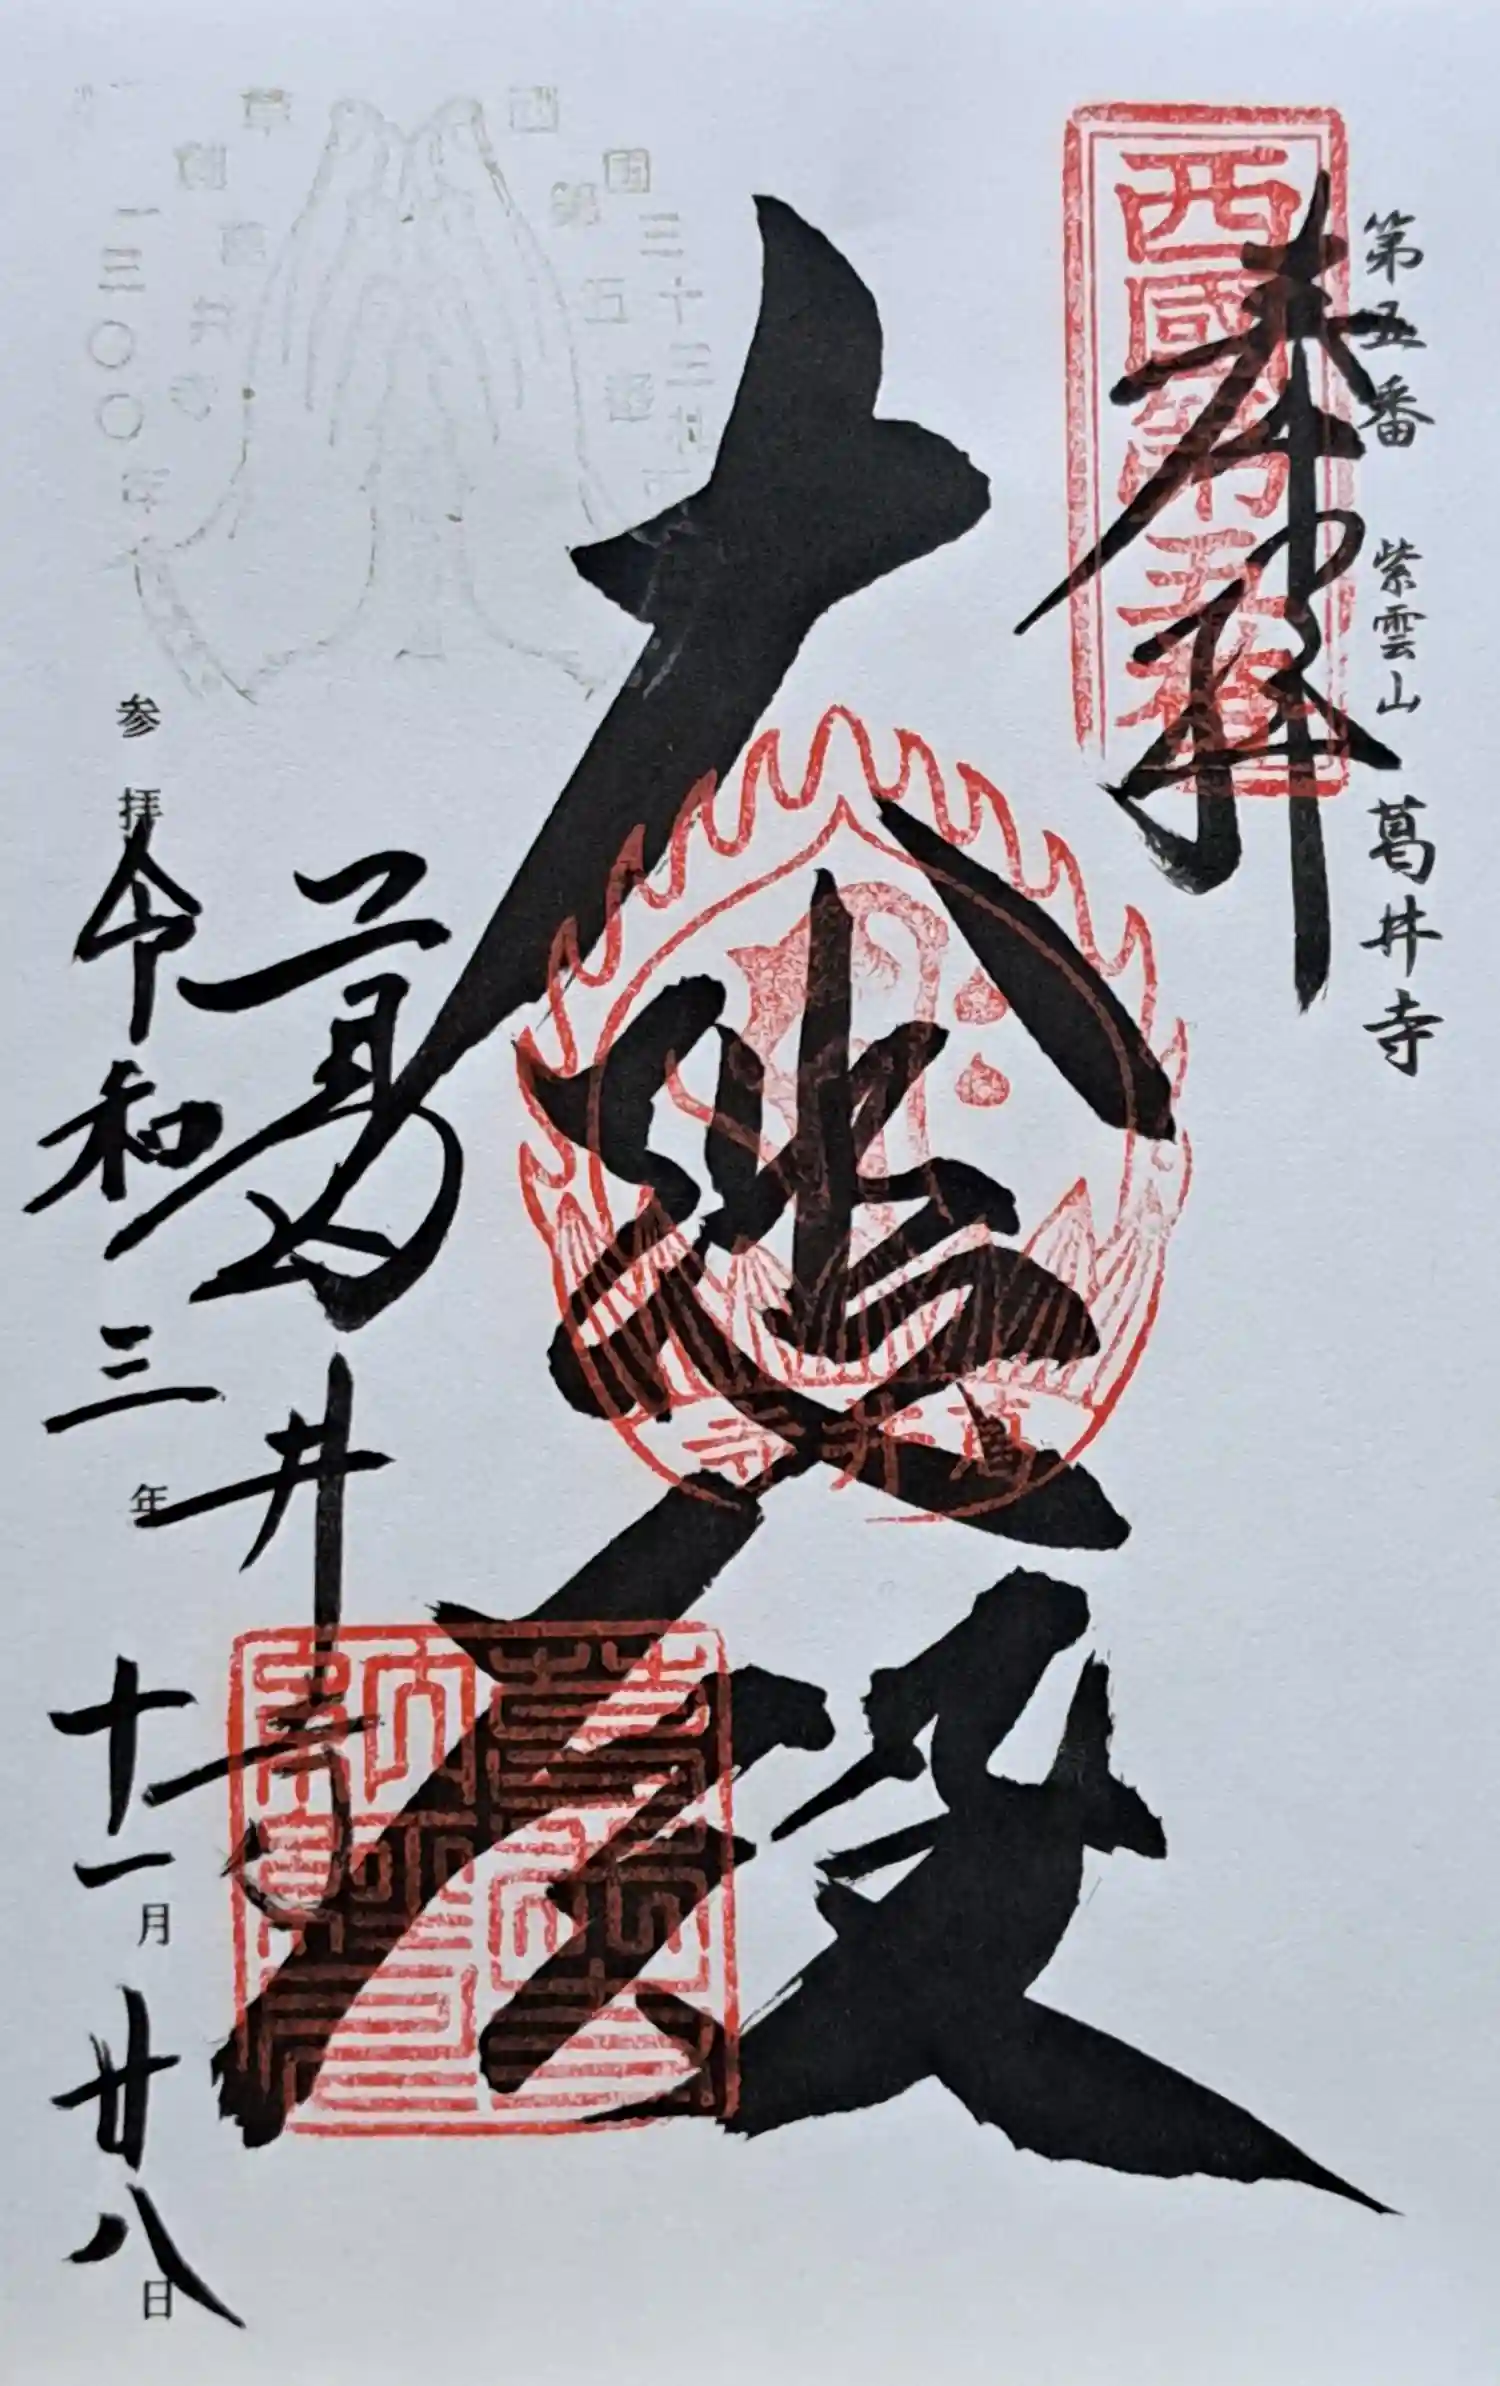 第五番 紫雲山 葛井寺
西國第五番
奉拝
大悲殿
葛井寺
葛井寺
参拝 令和三年十一月廿八日
西国三十三
第五番
草創一三〇〇年
葛井寺